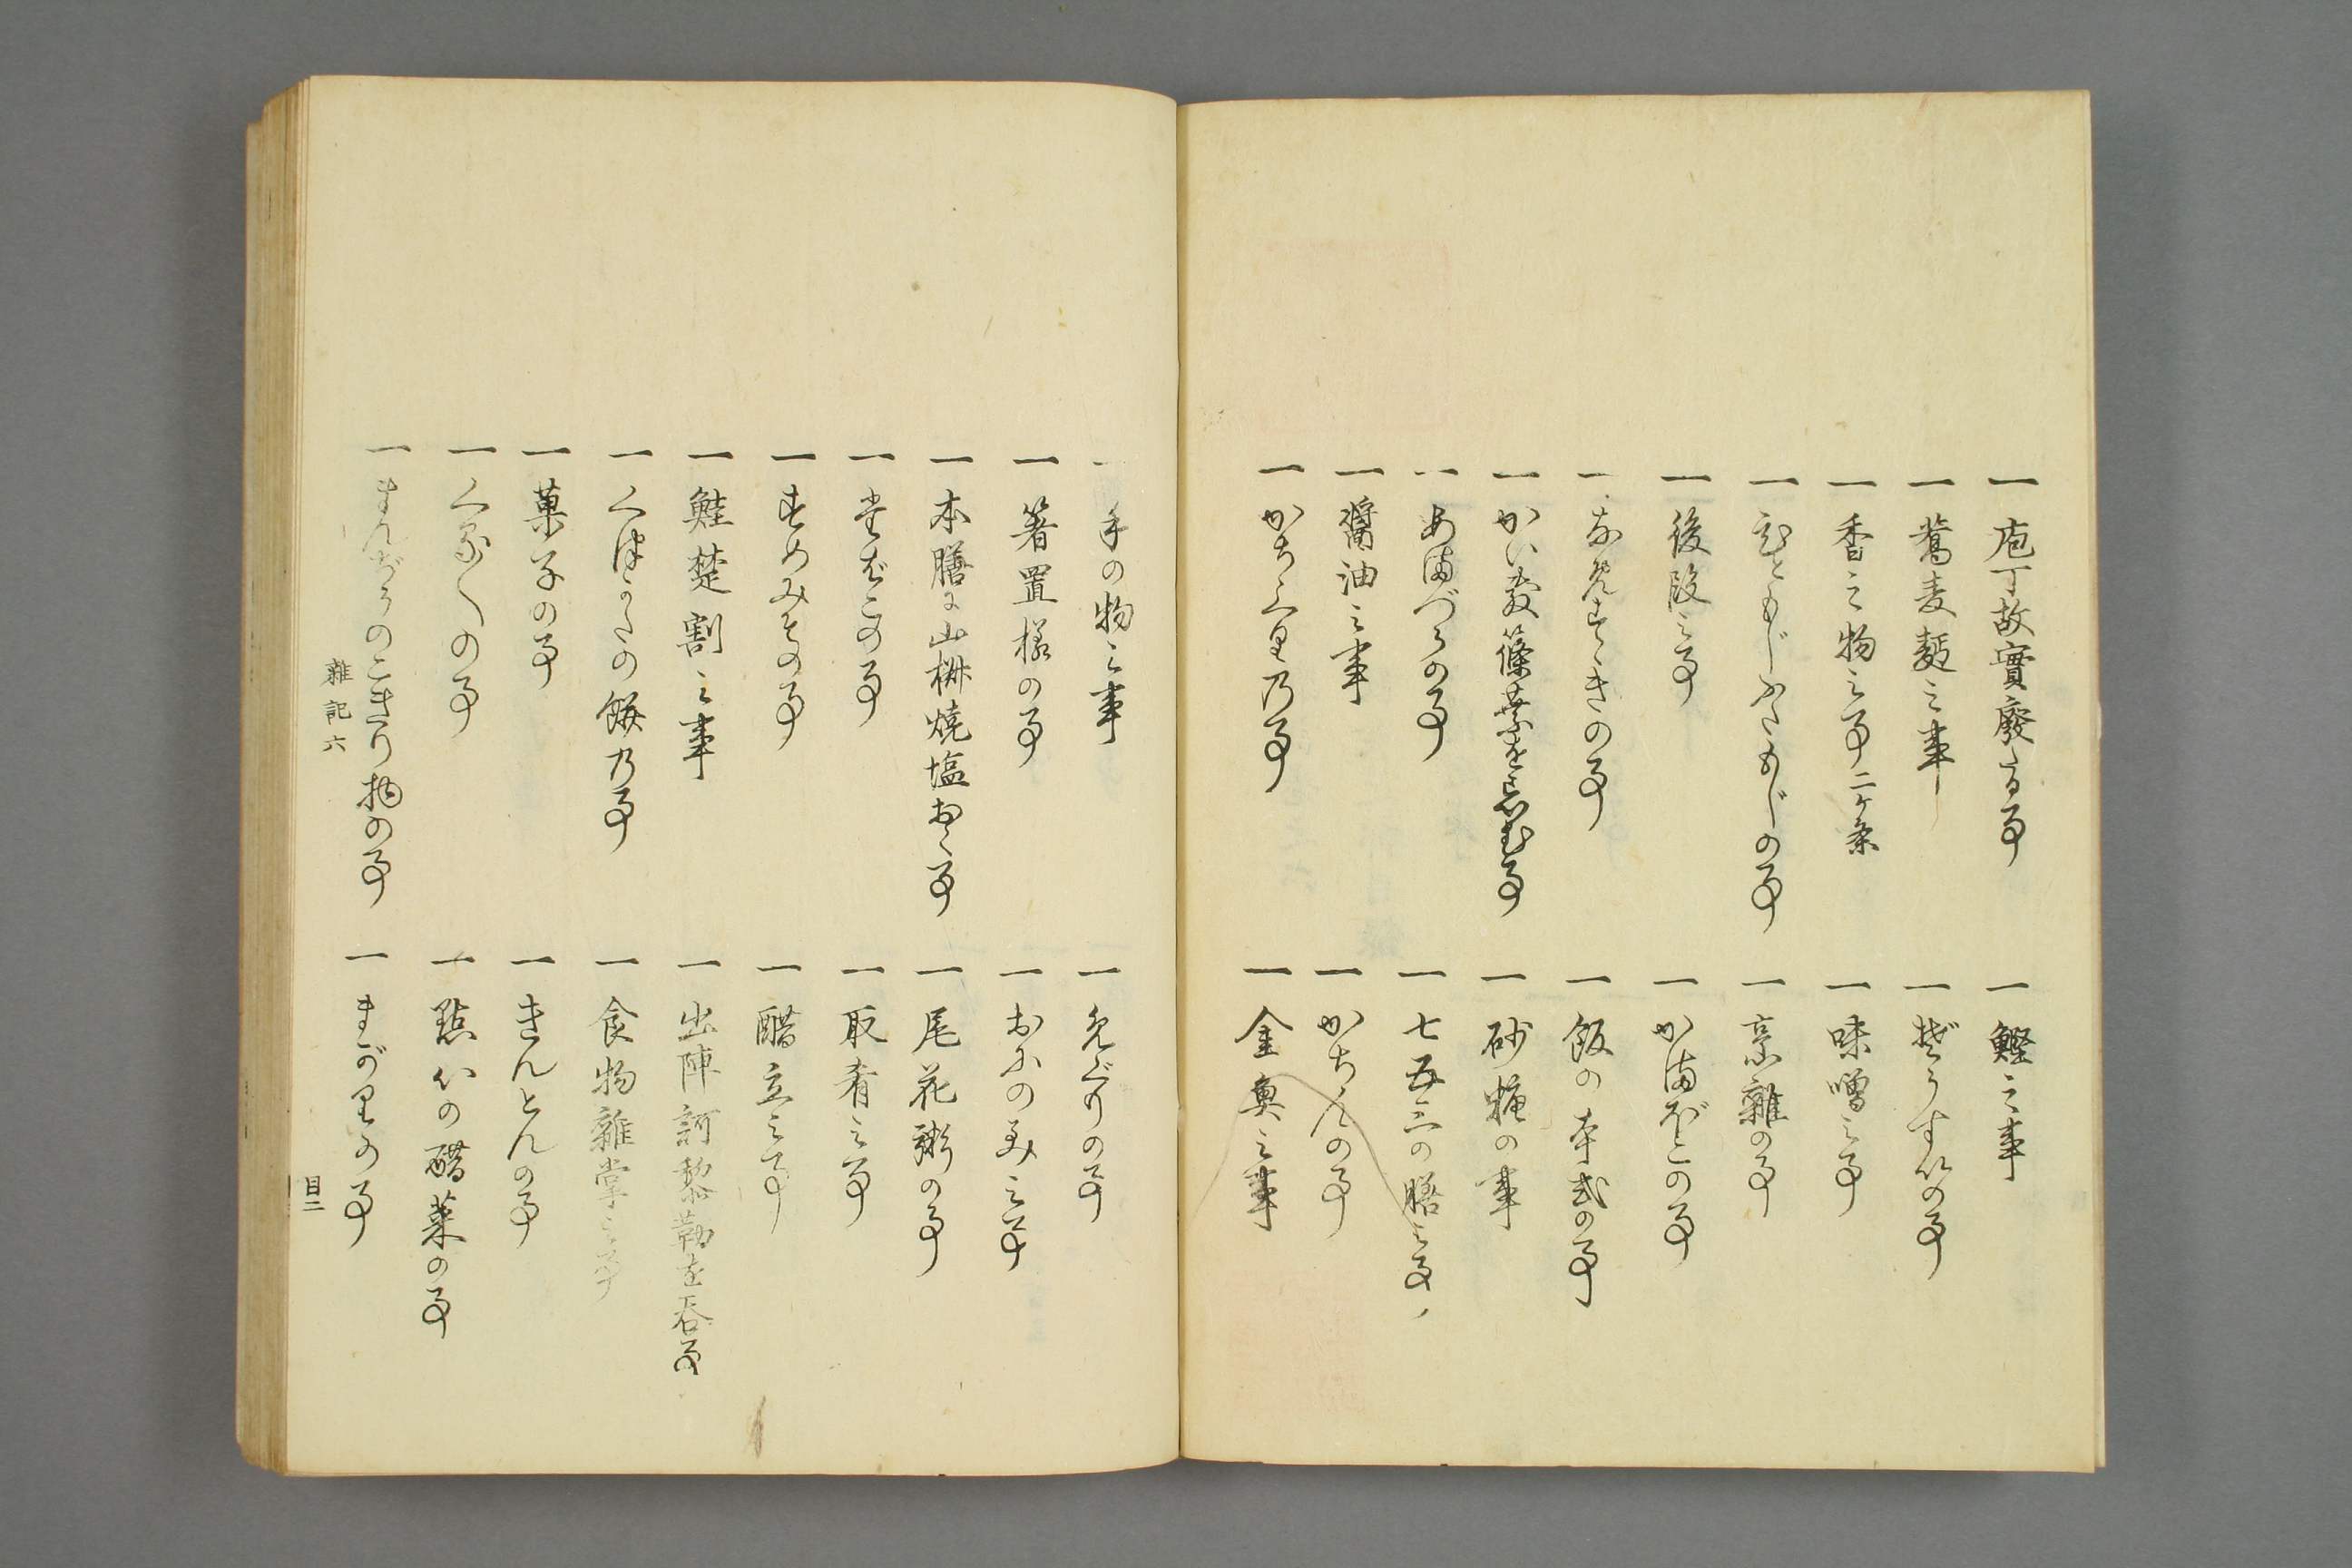 一 庖丁故實廢る事
一 鰹之事
一 蕎麦麺之事
一 ぞうすいの事
一 香之物之事 二ケ条
一 味噌之事
一 ひともじふたもじの事
一 烹雜の事
一 後段之事
一 かまぼこの事
一 あえまぜの事
一 飯の本式の事
一 かい敷篠葉を忌む事
一 砂糖の事
一 あまづらの事
一 七五三の膳之事
一 醤油之事
一 かちんの事
一 かちぐり乃事
一 金奥之事
一 手の物之事
一 箸置様の事
一 おふのみ之事
一 本膳に山椒焼塩おく事
一 尾花粥の事
一 たばこの事
一 取肴之事
一 すゝめみその事
一 醋立之事
一 鮭楚割之事
一 出陣訶黎勒を呑事
一 くぼつきの餅乃事
一 食物雜掌之事
一 菓子の事
一 きんとんの事
一 くゑ〳〵の事
一 點心の醋菜の事
一 まんぢうのこきり物の事
一 まがりの事
雜記六
目二